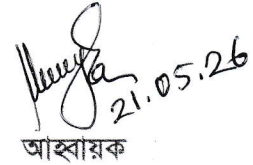 21.05.26
আহবায়ক